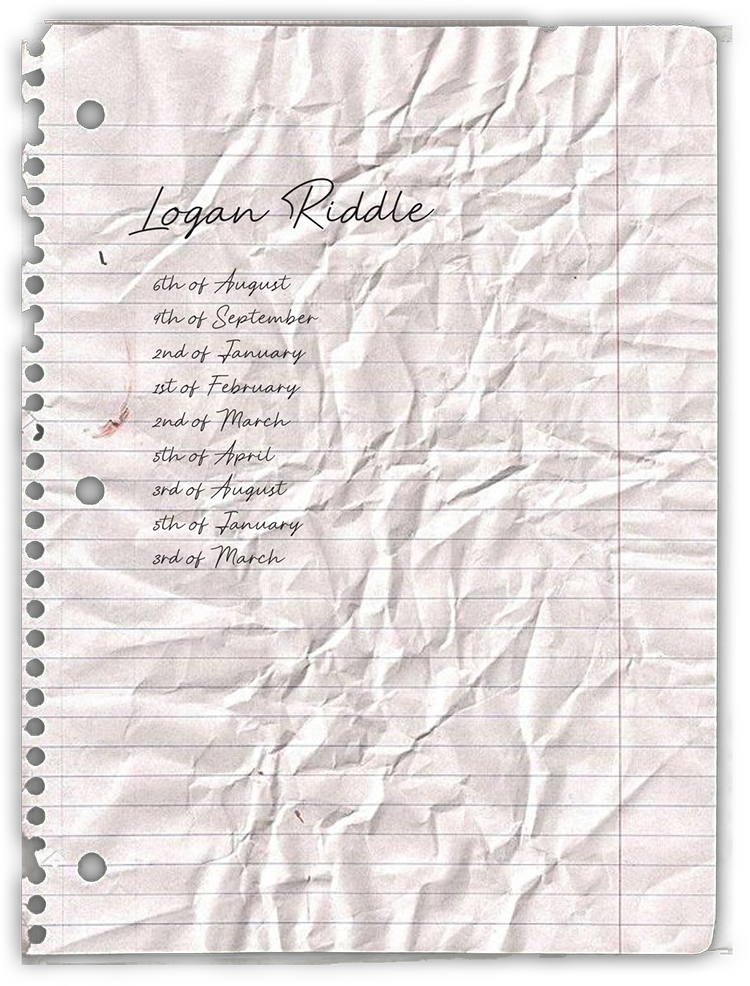 Logan Riddle
6th of August
9th of September
2nd of January
1st of February
2nd of March
5th of April
3rd of August
5th of January
3rd of March